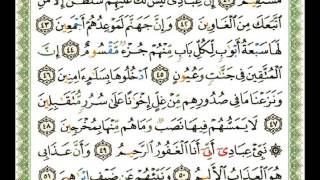 مُسْتَقِيمٌ ٤١ إِنَّ عِبَادِي لَيْسَ لَكَ عَلَيْهِمْ سُلْطَٰنٌ إِلَّا مَنِ
ٱتَّبَعَكَ مِنَ ٱلْغَاوِينَ ٤٢ وَإِنَّ جَهَنَّمَ لَمَوْعِدُهُمْ أَجْمَعِينَ ٤٣
لَهَا سَبْعَةُ أَبْوَٰبٍ لِّكُلِّ بَابٍ مِّنْهُمْ جُزْءٌ مَّقْسُومٌ ٤٤ إِنَّ
ٱلْمُتَّقِينَ فِي جَنَّٰتٍ وَعُيُونٍ ٤٥ ٱدْخُلُوهَا بِسَلَٰمٍ ءَامِنِينَ ٤٦
وَنَزَعْنَا مَا فِي صُدُورِهِم مِّنْ غِلٍّ إِخْوَٰنًا عَلَىٰ سُرُرٍ مُّتَقَٰبِلِينَ
٤٧ لَا يَمَسُّهُمْ فِيهَا نَصَبٌ وَمَا هُم مِّنْهَا بِمُخْرَجِينَ
٤٨ نَبِّئْ عِبَادِي أَنِّي أَنَا ٱلْغَفُورُ ٱلرَّحِيمُ ٤٩ وَأَنَّ عَذَابِي
هُوَ ٱلْعَذَابُ ٱلْأَلِيمُ ٥٠ وَنَبِّئْهُمْ عَن ضَيْفِ إِبْرَٰهِيمَ ٥١